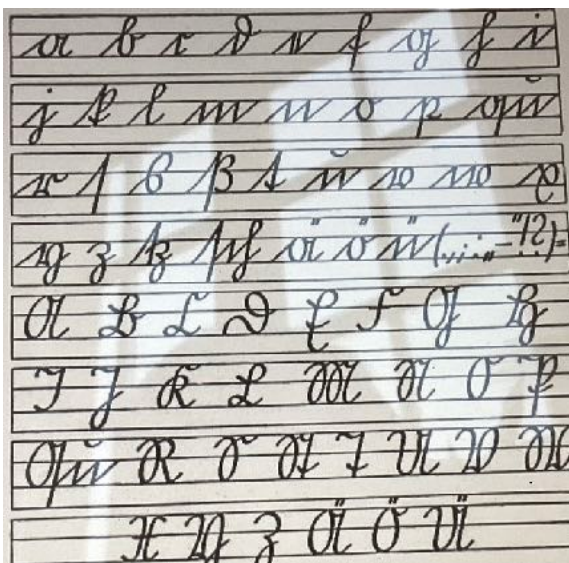 a b c d e f g h i
j k l m n o p qu
r ſ s ß t u v w x
y z tz ä ö ü (.,;:„-“!?)=
A B C D E F G H
I J K L M N O P
Qu R S St T U V W
X Y Z Ä Ö Ü